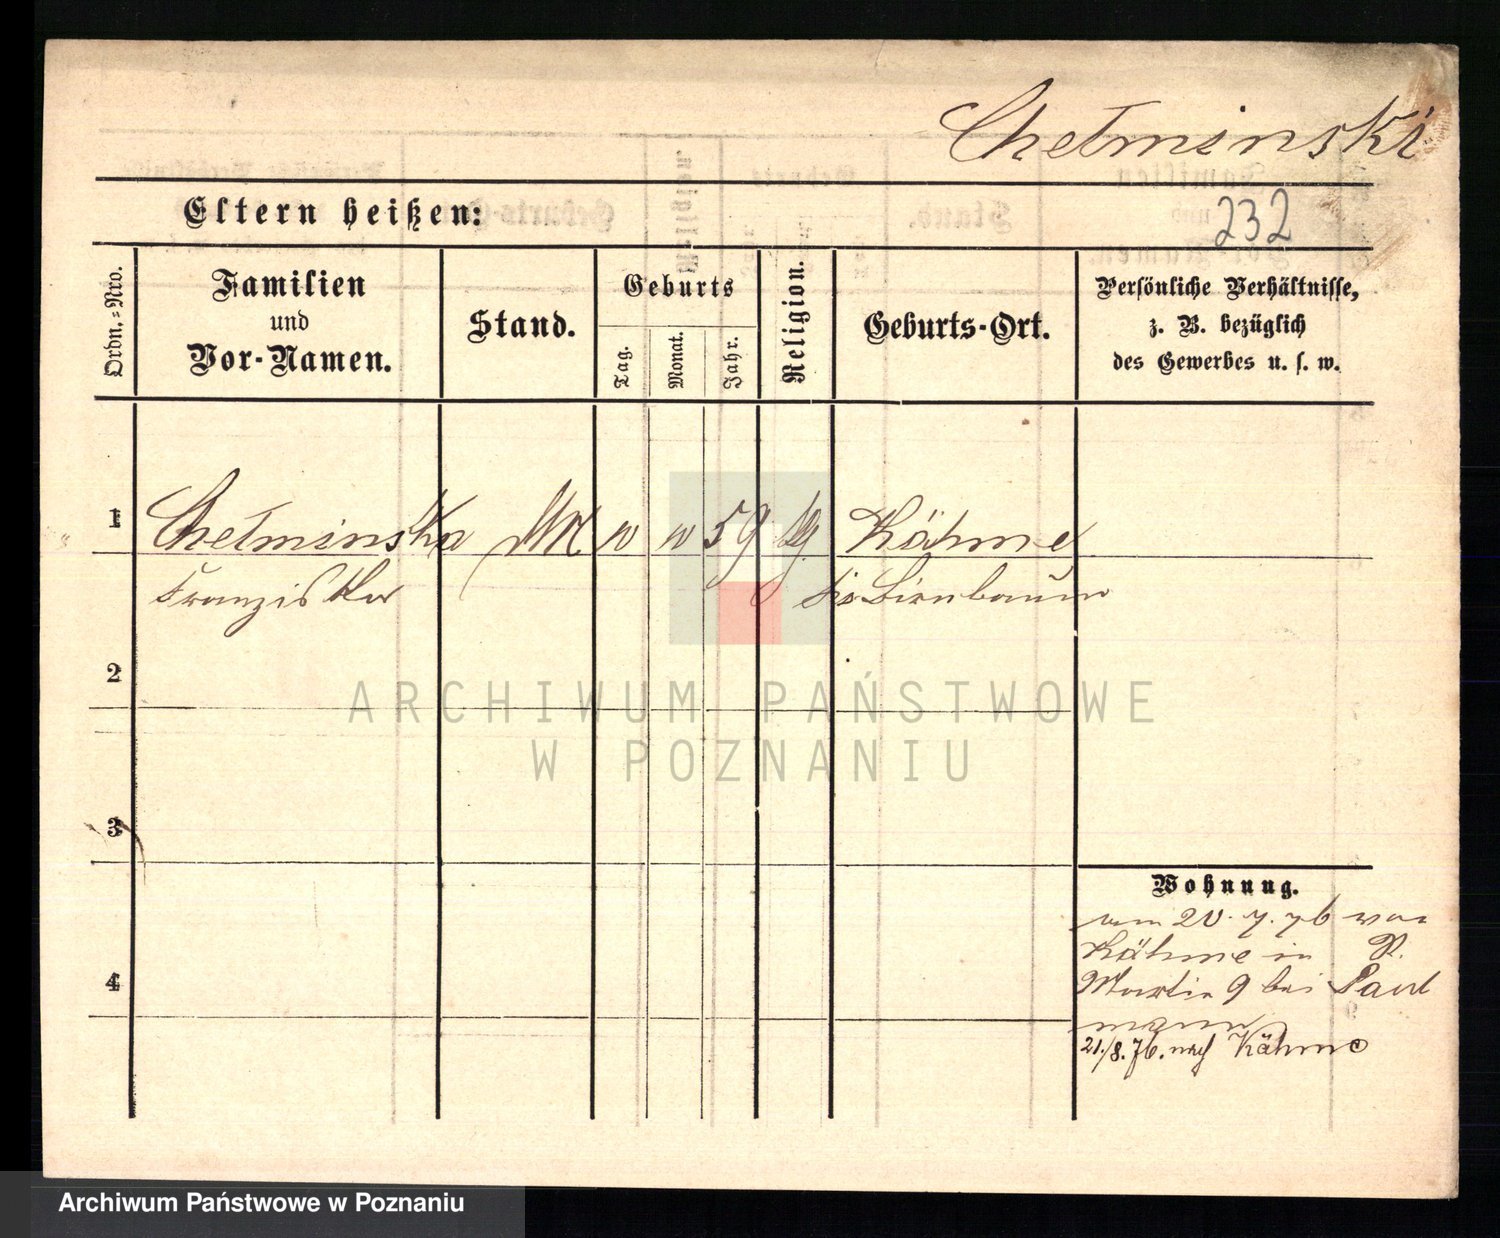 Chełminski
Eltern heißen:
232
Ordn.-Nro.
Familien
und
Vor-Namen.
Stand.
Geburts
Tag.
Monat.
Jahr.
Religion.
Geburts-Ort.
Persönliche Verhältnisse,
z. B. bezüglich
des Gewerbes u. s. w.
1
Chełminska
59
Kähme
Franziska
Birnbaum
2
ARCHIWUM PAŃSTWOWE
W POZNANIU
3
Wohnung.
am 20.7.76 von
Kähme in
4
Martin 9 bei Paul
mann
21./8.76. nach Kähme
Archiwum Państwowe w Poznaniu